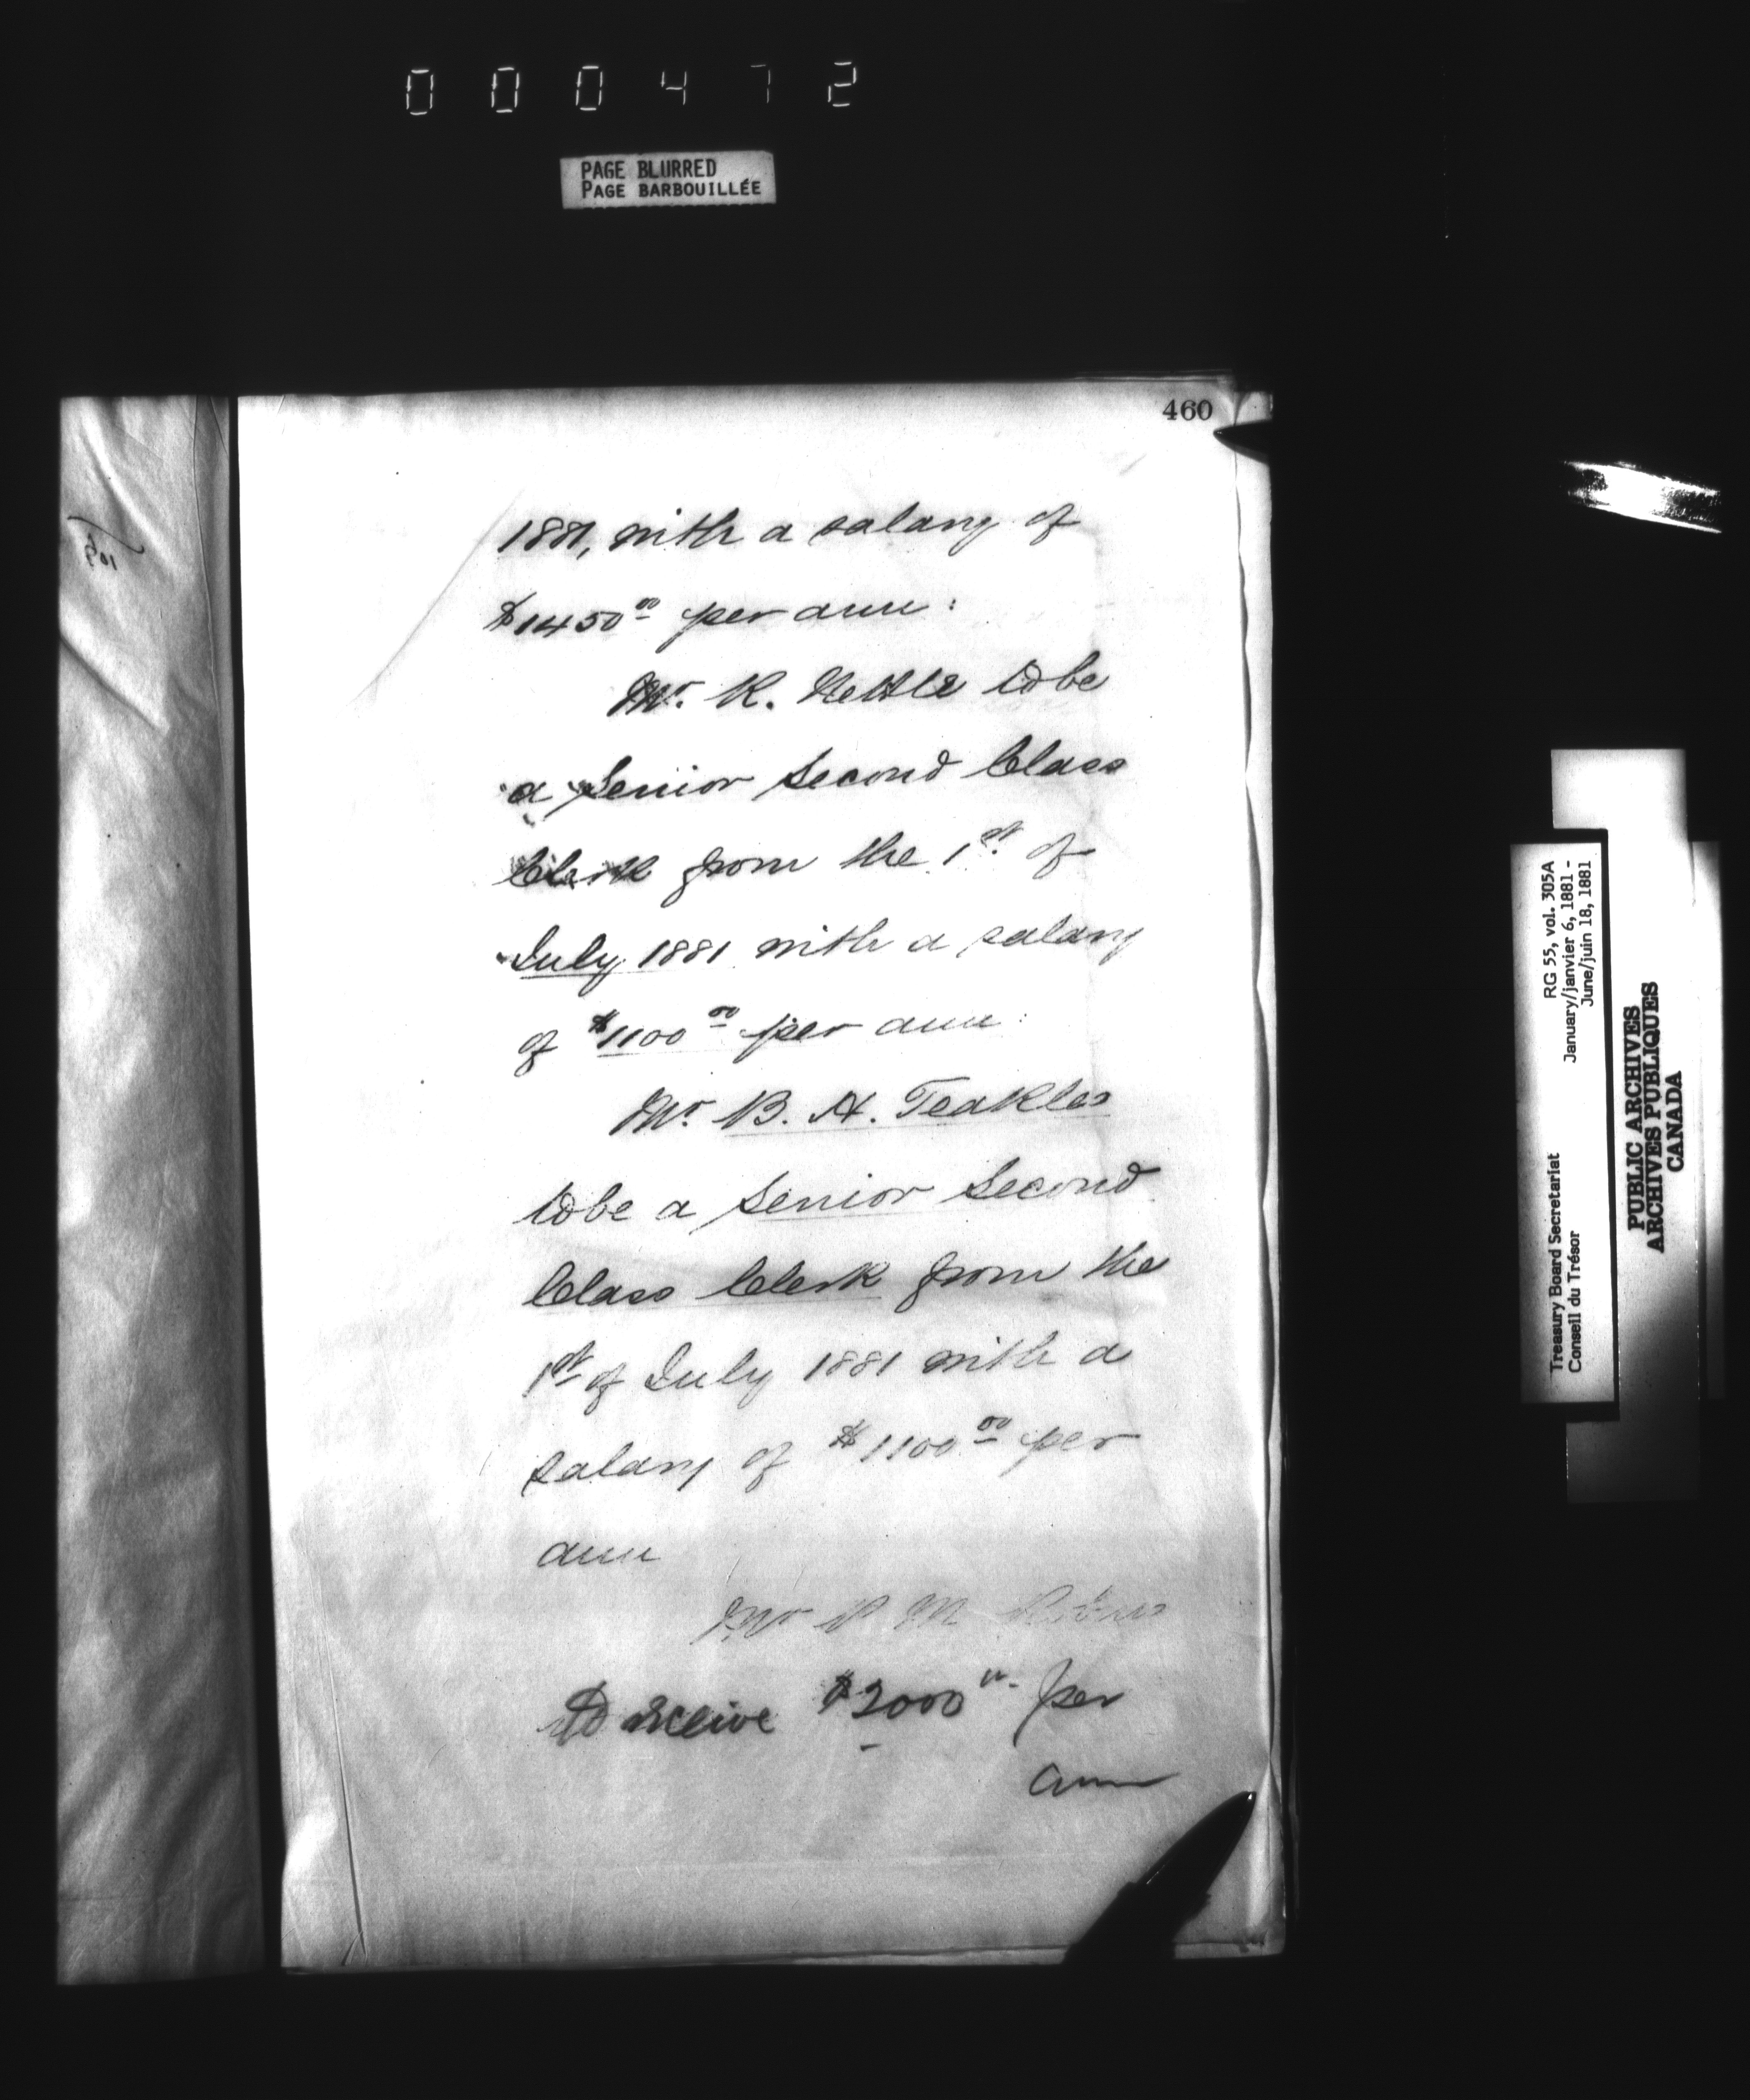 000472
PAGE BLURRED
PAGE BARBOUILLÉE
460
1881, with a salary of
$1450 00 per ann:
Mr. R. Nettle to be
a Senior Second Class
Clerk from the 1st. of
July 1881 with a salary
of $1100 00 per ann:
Mr. B. H. Teakles
to be a Senior Second
Class Clerk from the
1st of July 1881 with a
salary of $1100 00 per
ann
Mr M
to receive $2000 per
ann
RG 55, vol. 305A
January/janvier 6, 1881 -
June/juin 18, 1881
Treasury Board Secretariat
Conseil du Trésor
PUBLIC ARCHIVES
ARCHIVES PUBLIQUES
CANADA